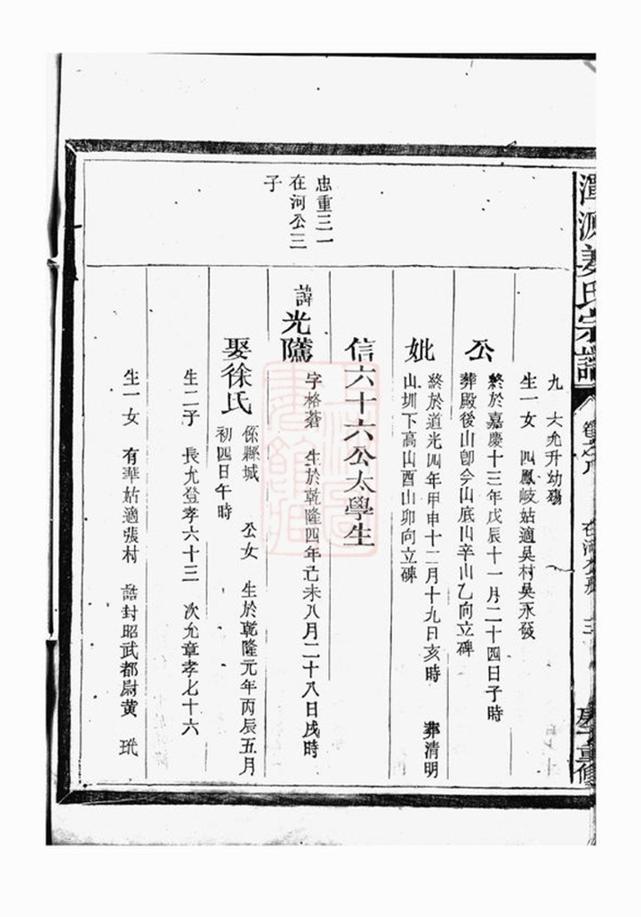 源姜氏宗譜
在河公
三
重修
九 大允升幼殤
生一女 四鳳岐姑適吳村吳永發
公 終於嘉慶十三年戊辰十一月二十四日子時
葬殿後山卽今山底山辛山乙向立碑
妣 終於道光四年甲申十二月十九日亥時 葬清明
山圳下高山酉山卯向立碑
忠重三一
在河公三
子
信六十六公太學生
諱光隲 字格蒼 生於乾隆四年己未八月二十八日戌時
娶徐氏 係縣城 公女 生於乾隆元年丙辰五月
初四日午時
生二子 長允登孝六十三 次允章孝七十六
生一女 有華姑適張村 誥封昭武都尉黃 珖